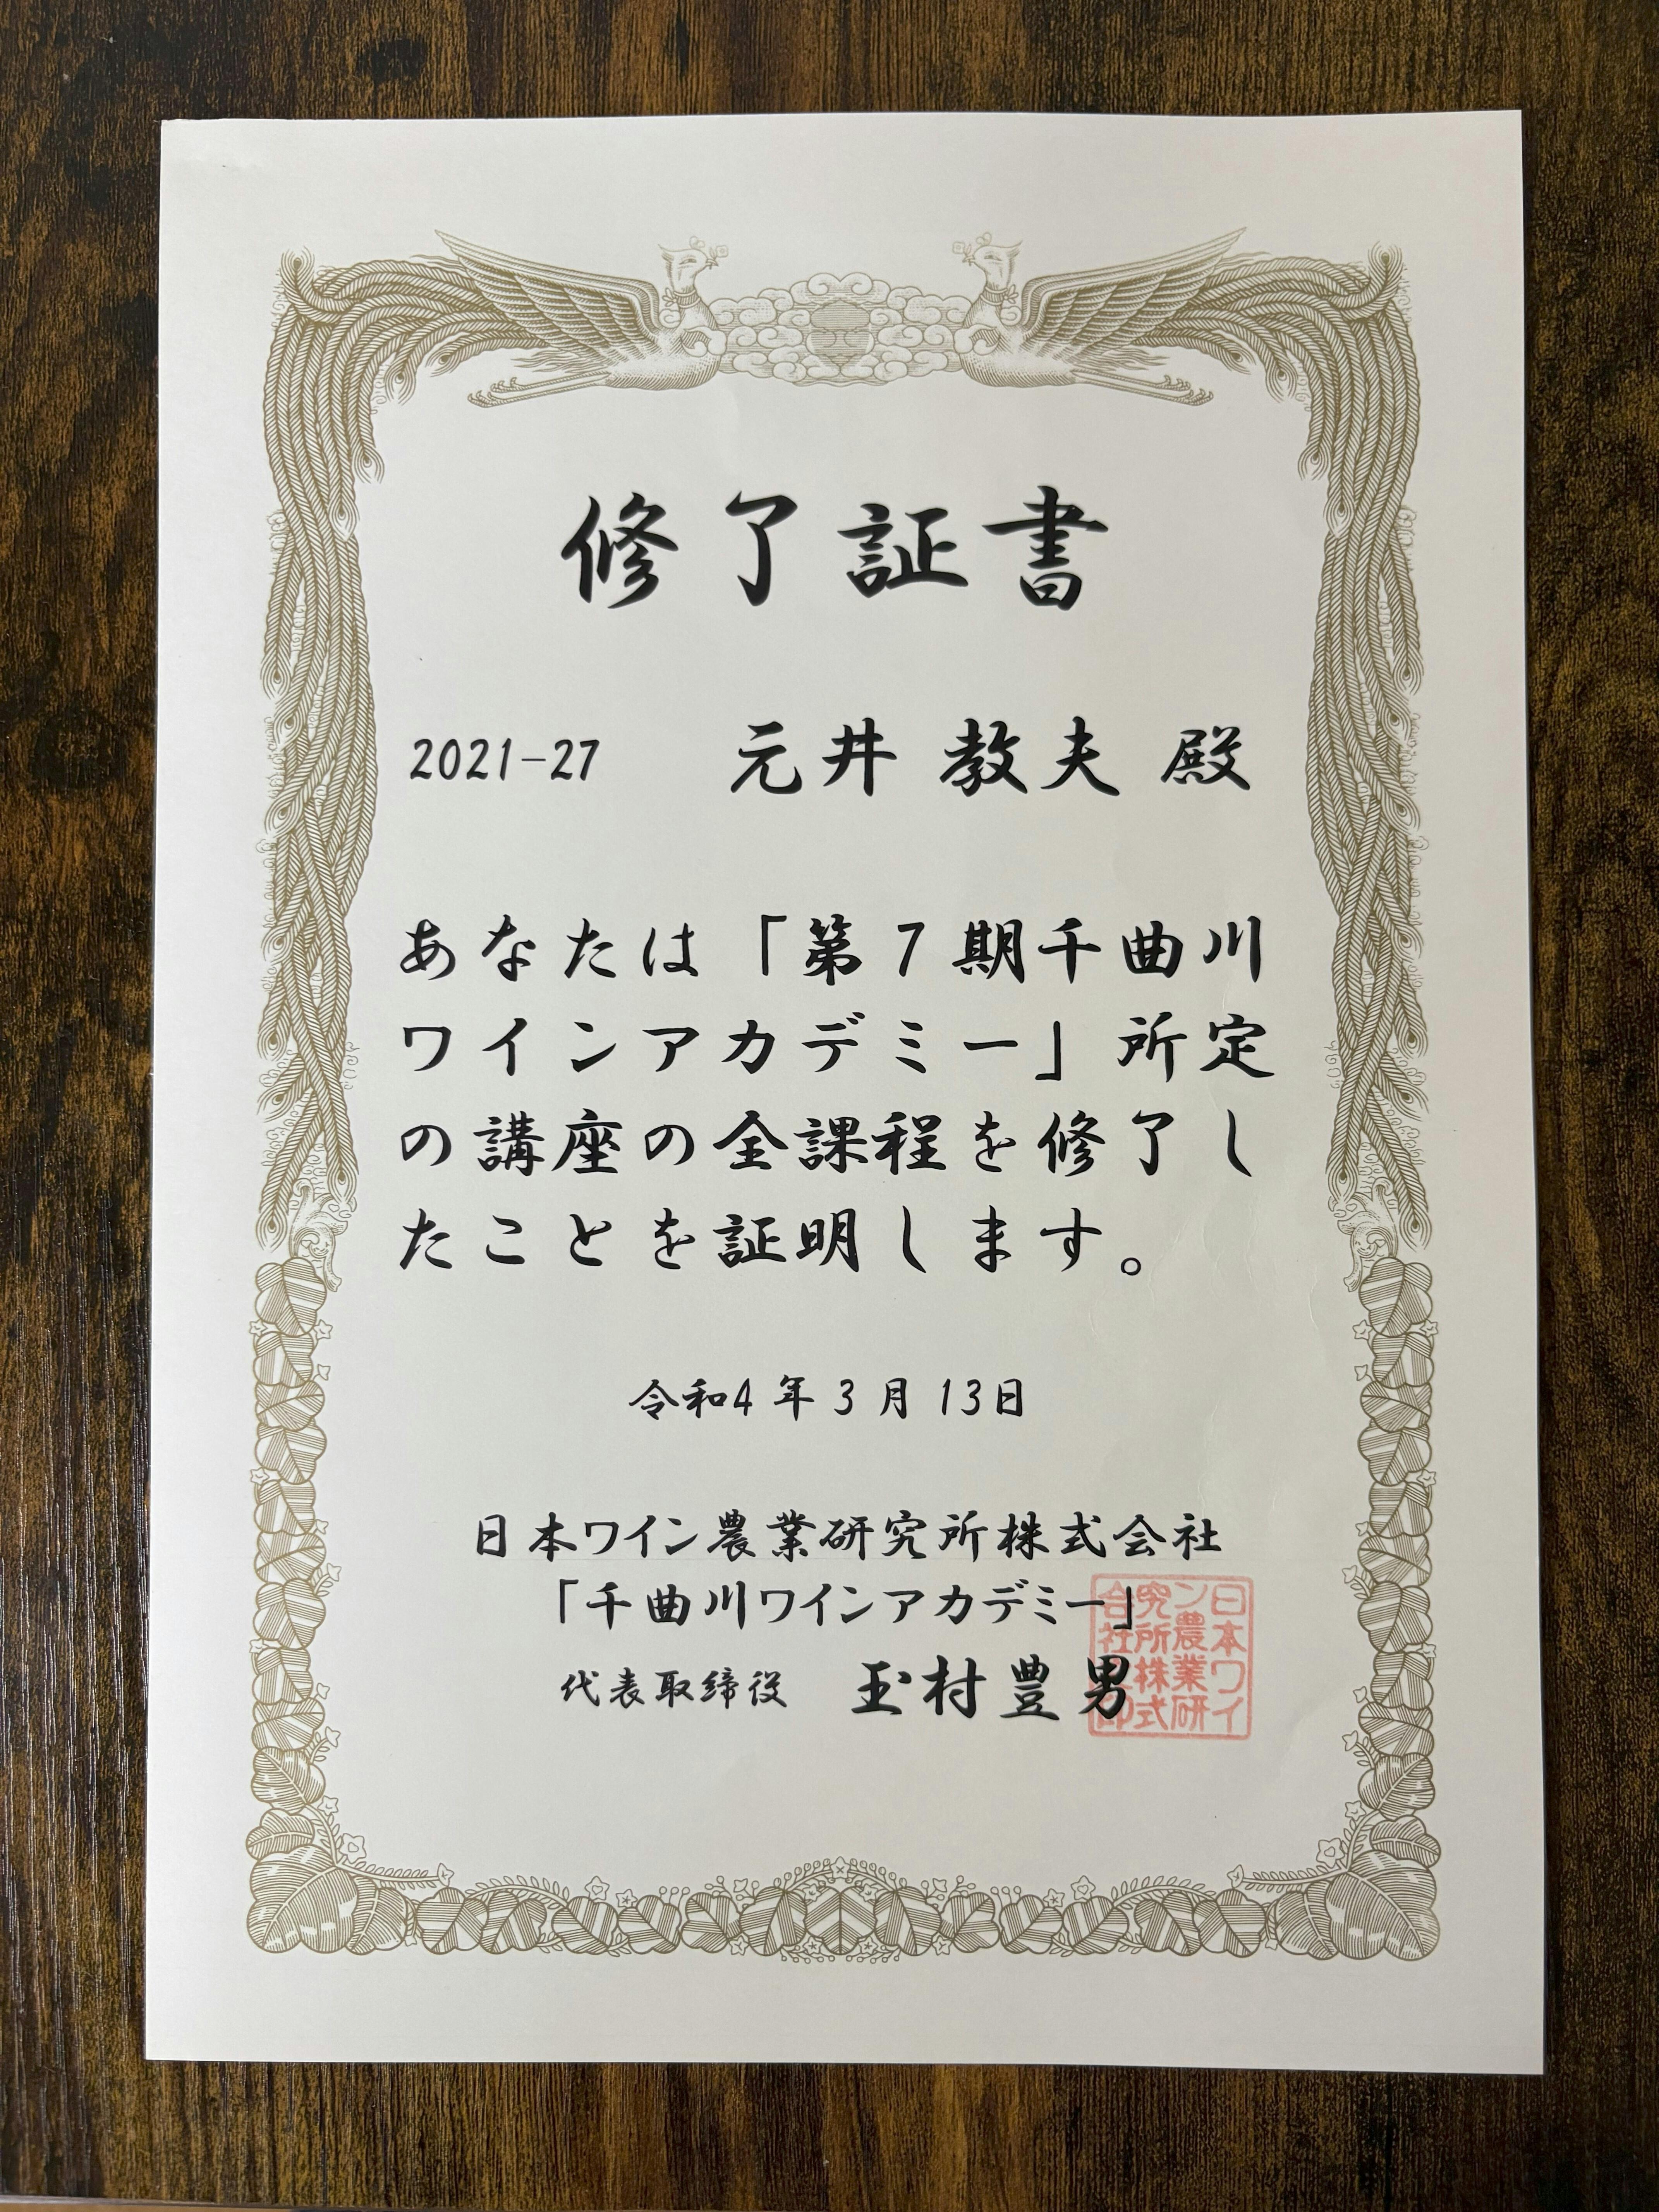 修了証書
2021-27 元井 教夫 殿
あなたは「第7期千曲川
ワインアカデミー」所定
の講座の全課程を修了し
たことを証明します。
令和4年3月13日
日本ワイン農業研究所株式会社
「千曲川ワインアカデミー」
代表取締役 玉村豊男
日本ワイ
ン農業研
究所株式
会社之印